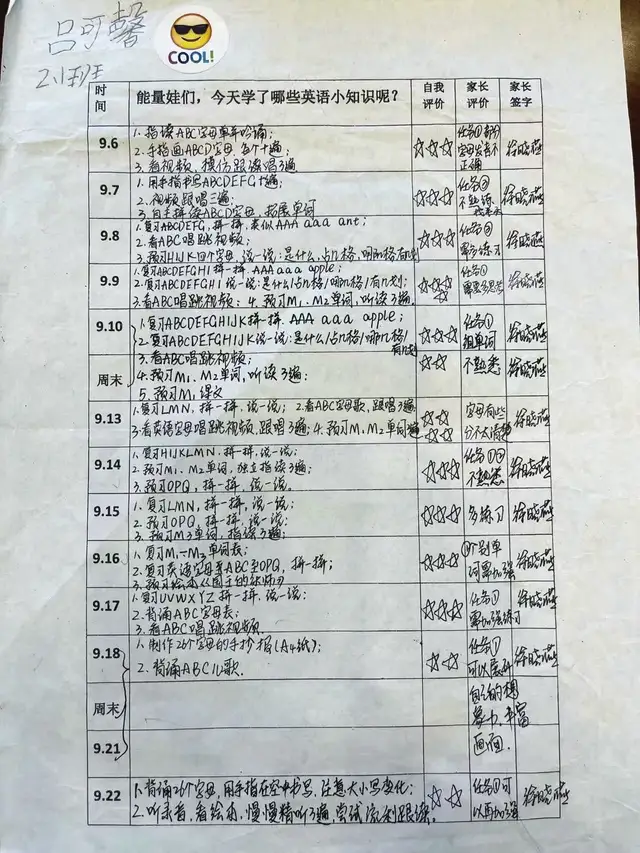 吕可馨
COOL!
2.1班
时间 能量娃们，今天学了哪些英语小知识呢？ 自我评价 家长评价 家长签字
9.6
1. 指读ABC字母单
2. 手指画ABCD字母 各个十遍；
3. 看视频，模仿跟读唱3遍
任务①部分字母发音不正确
徐晓燕
9.7
1. 用手指书写ABCDEFG十遍；
2. 视频跟唱三遍；
3. 自主拼读ABCD字母，拓展单词
任务③不熟练
徐晓燕
9.8
1. 复习ABCDEFG，拼一拼，类似AAA aaa ant；
2. 看ABC唱跳视频；
3. 预习HIJK四个字母，说一说：是什么，占几格，哪几格，有几划
任务③需多练习
徐晓燕
9.9
1. 复习ABCDEFGHI 拼一拼，AAA aaa apple；
2. 复习ABCDEFGHI 说一说：是什么/占几格/哪几格/有几划；
3. 看ABC唱跳视频；4. 预习M1、M2单词，听读3遍
任务①需要多思考
徐晓燕
9.10
周末
1. 复习ABCDEFGHIJK拼一拼，AAA aaa apple；
2. 复习ABCDEFGHIJK说一说：是什么/占几格/哪几格/有几划
3. 看ABC唱跳视频；
4. 预习M1、M2单词，听读3遍；
5. 预习M1课文
任务①组单词不熟悉
徐晓燕
徐晓燕
9.13
1. 复习LMN，拼一拼，说一说；2. 看ABC字母歌，跟唱3遍
3. 看英语字母唱跳视频，跟唱3遍；4. 预习M1、M2单词3遍
字母有些分不太清楚
徐晓燕
9.14
1. 复习HIJKLMN，拼一拼，说一说；
2. 预习M1、M2单词，独立指读3遍；
3. 预习OPQ，拼一拼，说一说。
任务①不熟悉
徐晓燕
9.15
1. 复习LMN，拼一拼，说一说；
2. 预习OPQ，拼一拼，说一说；
3. 预习M3单词，指读3遍；
多练习
徐晓燕
9.16
1. 复习M1-M3单词表；
2. 复习英语字母表ABC至OPQ，拼一拼；
3. 预习绘本
①个别单词需加强
徐晓燕
9.17
1. 复习UVWXYZ拼一拼，说一说；
2. 背诵ABC字母表；
3. 看ABC唱跳视频
任务①需加强练习
徐晓燕
9.18
周末
9.21
1. 制作26个字母的手抄报(A4纸)；
2. 背诵ABC儿歌.
任务①可以展开自己的想象力，丰富画面.
徐晓燕
9.22
1. 背诵26个字母，用手指在空中书写，注意大小写变化；
2. 听录音，看绘本，慢慢精听3遍，尝试流利跟读。
任务①可以再加强
徐晓燕